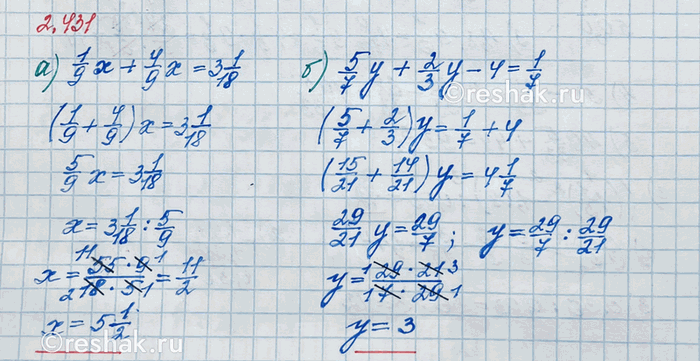 2.431
а) 1/9 x + 4/9 x = 3 1/18
(1/9 + 4/9) x = 3 1/18
5/9 x = 3 1/18
x = 3 1/18 : 5/9
x = 55 · 9 / 18 · 5 = 11/2
11 1
2 1
x = 5 1/2
б) 5/7 y + 2/3 y - 4 = 1/7
(5/7 + 2/3) y = 1/7 + 4
(15/21 + 14/21) y = 4 1/7
29/21 y = 29/7 ; y = 29/7 : 29/21
y = 29 · 21 / 7 · 29
1 3
1 1
y = 3
©reshak.ru
reshak.ru